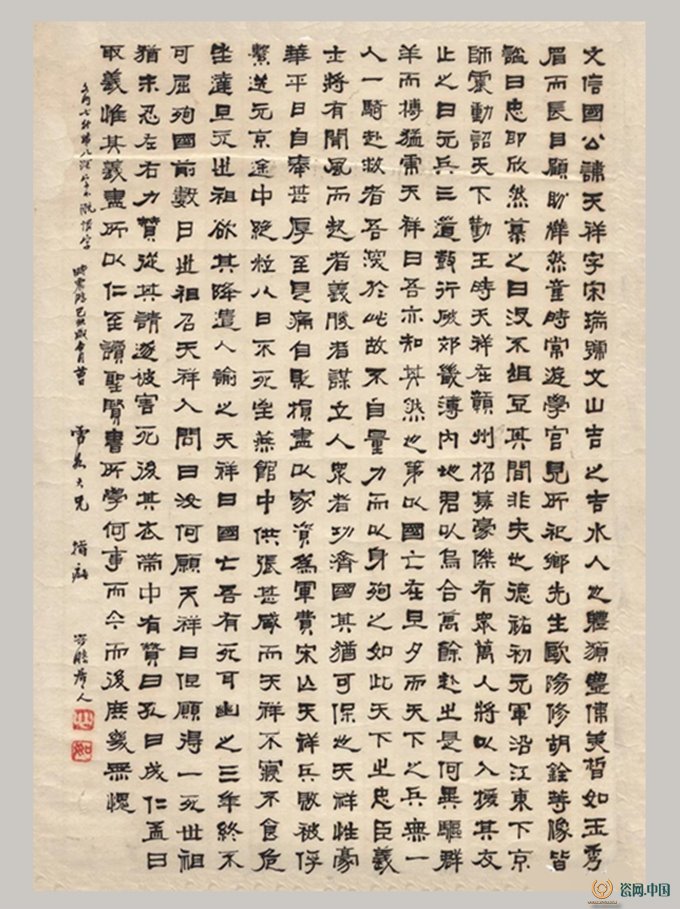 文信國公諱天祥字宋瑞號文山吉之吉水人也體貌豐偉美皙如玉秀
眉而長目顧盼燁然童時常遊學官見所祀鄉先生歐陽修胡銓等像皆
謚曰忠即欣然慕之曰沒不俎豆其間非夫也德祐初元軍沿江東下京
師震動詔天下勤王時天祥在贛州招募豪傑有眾萬人將以入援其友
止之曰元兵三道鼓行破郊畿薄內地君以烏合萬餘赴之是何異驅群
羊而搏猛虎天祥曰吾亦知其然也第以國亡在旦夕而天下之兵無一
人一騎赴救者吾深於此故不自量力而以身殉之如此天下之忠臣義
士將有聞風而起者義勝者謀立人眾者功濟國其猶可保也天祥性豪
華平日自奉甚厚至是痛自貶損盡以家資為軍費宋亡天祥兵敗被俘
繫送元京途中絕粒八日不死坐燕館中供張甚盛而天祥不寢不食危
坐達旦元世祖欲其降遣人諭之天祥曰國亡吾有死耳幽之三年終不
可屈殉國前數日世祖召天祥入問曰汝何願天祥曰但願得一死世祖
猶未忍左右力贊從其請遂被害死後其衣帶中有贊曰孔曰成仁孟曰
取義惟其義盡所以仁至讀聖賢書所學何事而今而後庶幾無愧
大兄
瓷网.中国